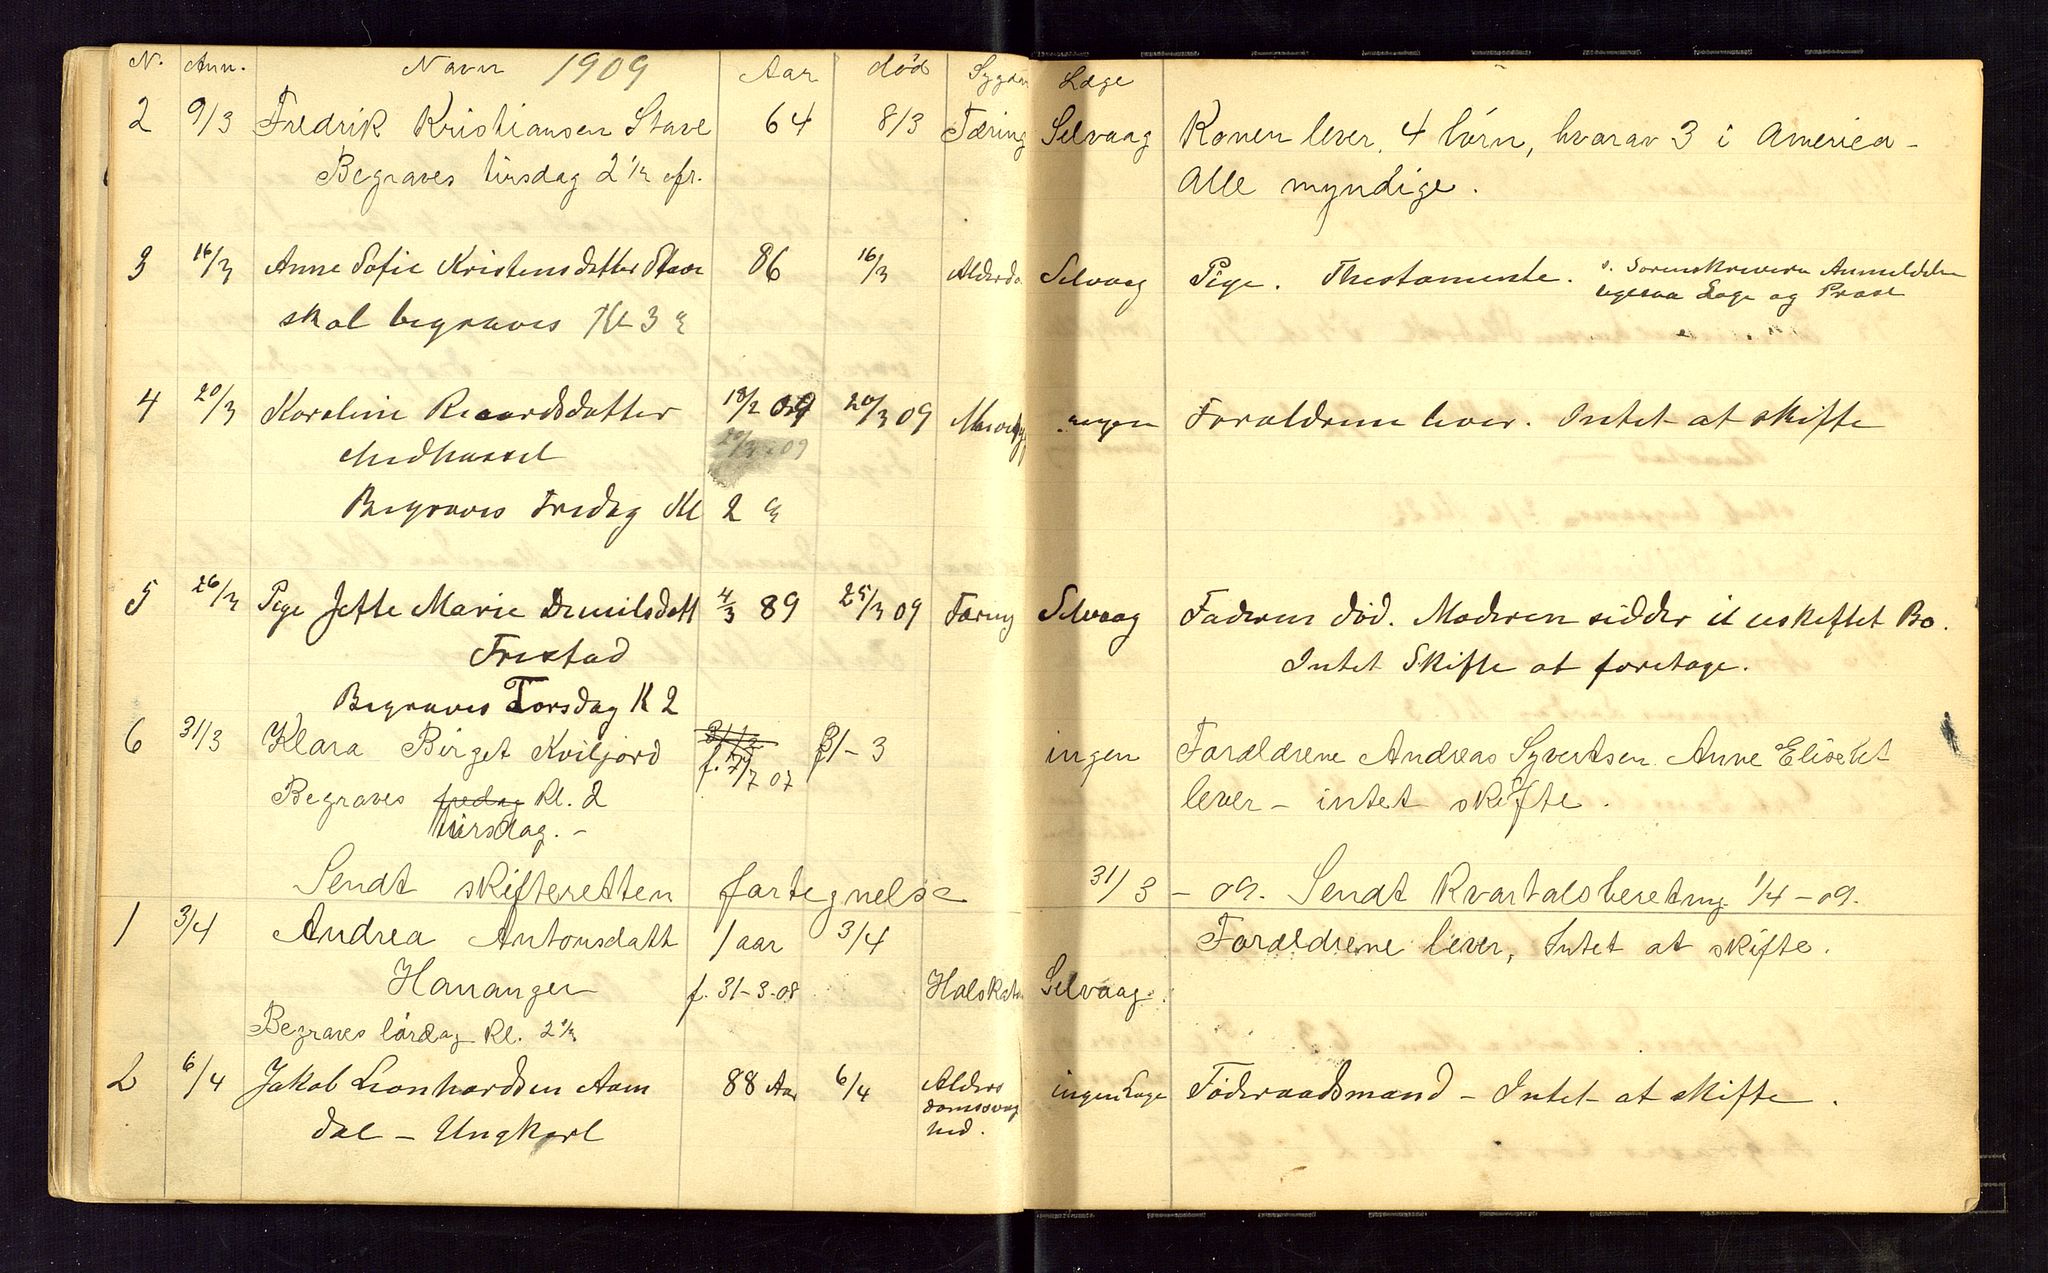 N. Ann. Navn 1909 Aar død Sygdom Læge
2 9/3 Fredrik Kristiansen Stave 64 8/3 Tæring Selvaag Konen lever, 4 børn, hvorav 3 i America -
Begraves tirsdag 2 1/2 efr. Alle myndige.
3 16/3 Anne Sofie Kristensdatter Stave 86 16/3 Alderdo. Selvaag Pige. Thestamente. s. Sorenskriverens Anmeldelse
skal begraves Kl 3 e ligesaa Læge og Præst
4 20/3 Karoline Ricardsdatter 18/2 09 20/3 09 ingen Forældrene lever. Intet at skifte
Midhassel 20/3 09
Begraves Fredag Kl 2 e
5 26/3 Pige Jette Marie Demilsdatt 4/3 89 25/3 09 Tæring Selvaag Faderen død. Moderen sidder i uskiftet Bo.
Frestad Intet Skifte at foretage.
Begraves Torsdag Kl 2
6 31/3 Klara Birget Kviljord 31/3 31-3 ingen Forældrene Andreas Syvertsen Anne Elisebet
f. /7 07
Begraves fredag Kl. 2 lever - intet skifte.
tirsdag. -
Sendt skifteretten fortegnelse 31/3 - 09. Sendt Kvartalsberetning 1/4 - 09.
1 3/4 Andrea Antonsdatt 1 aar 3/4 Forældrene lever, Intet at skifte.
Hananger f. 31-3-08 Halskatar Selvaag.
Begraves lørdag Kl. 2 1/2
2 6/4 Jakob Leonhardsen Aam 88 Aar 6/4 Alders ingen Læge Føderaadsmand - Intet at skifte.
dal - Ungkarl domssvag
hed.